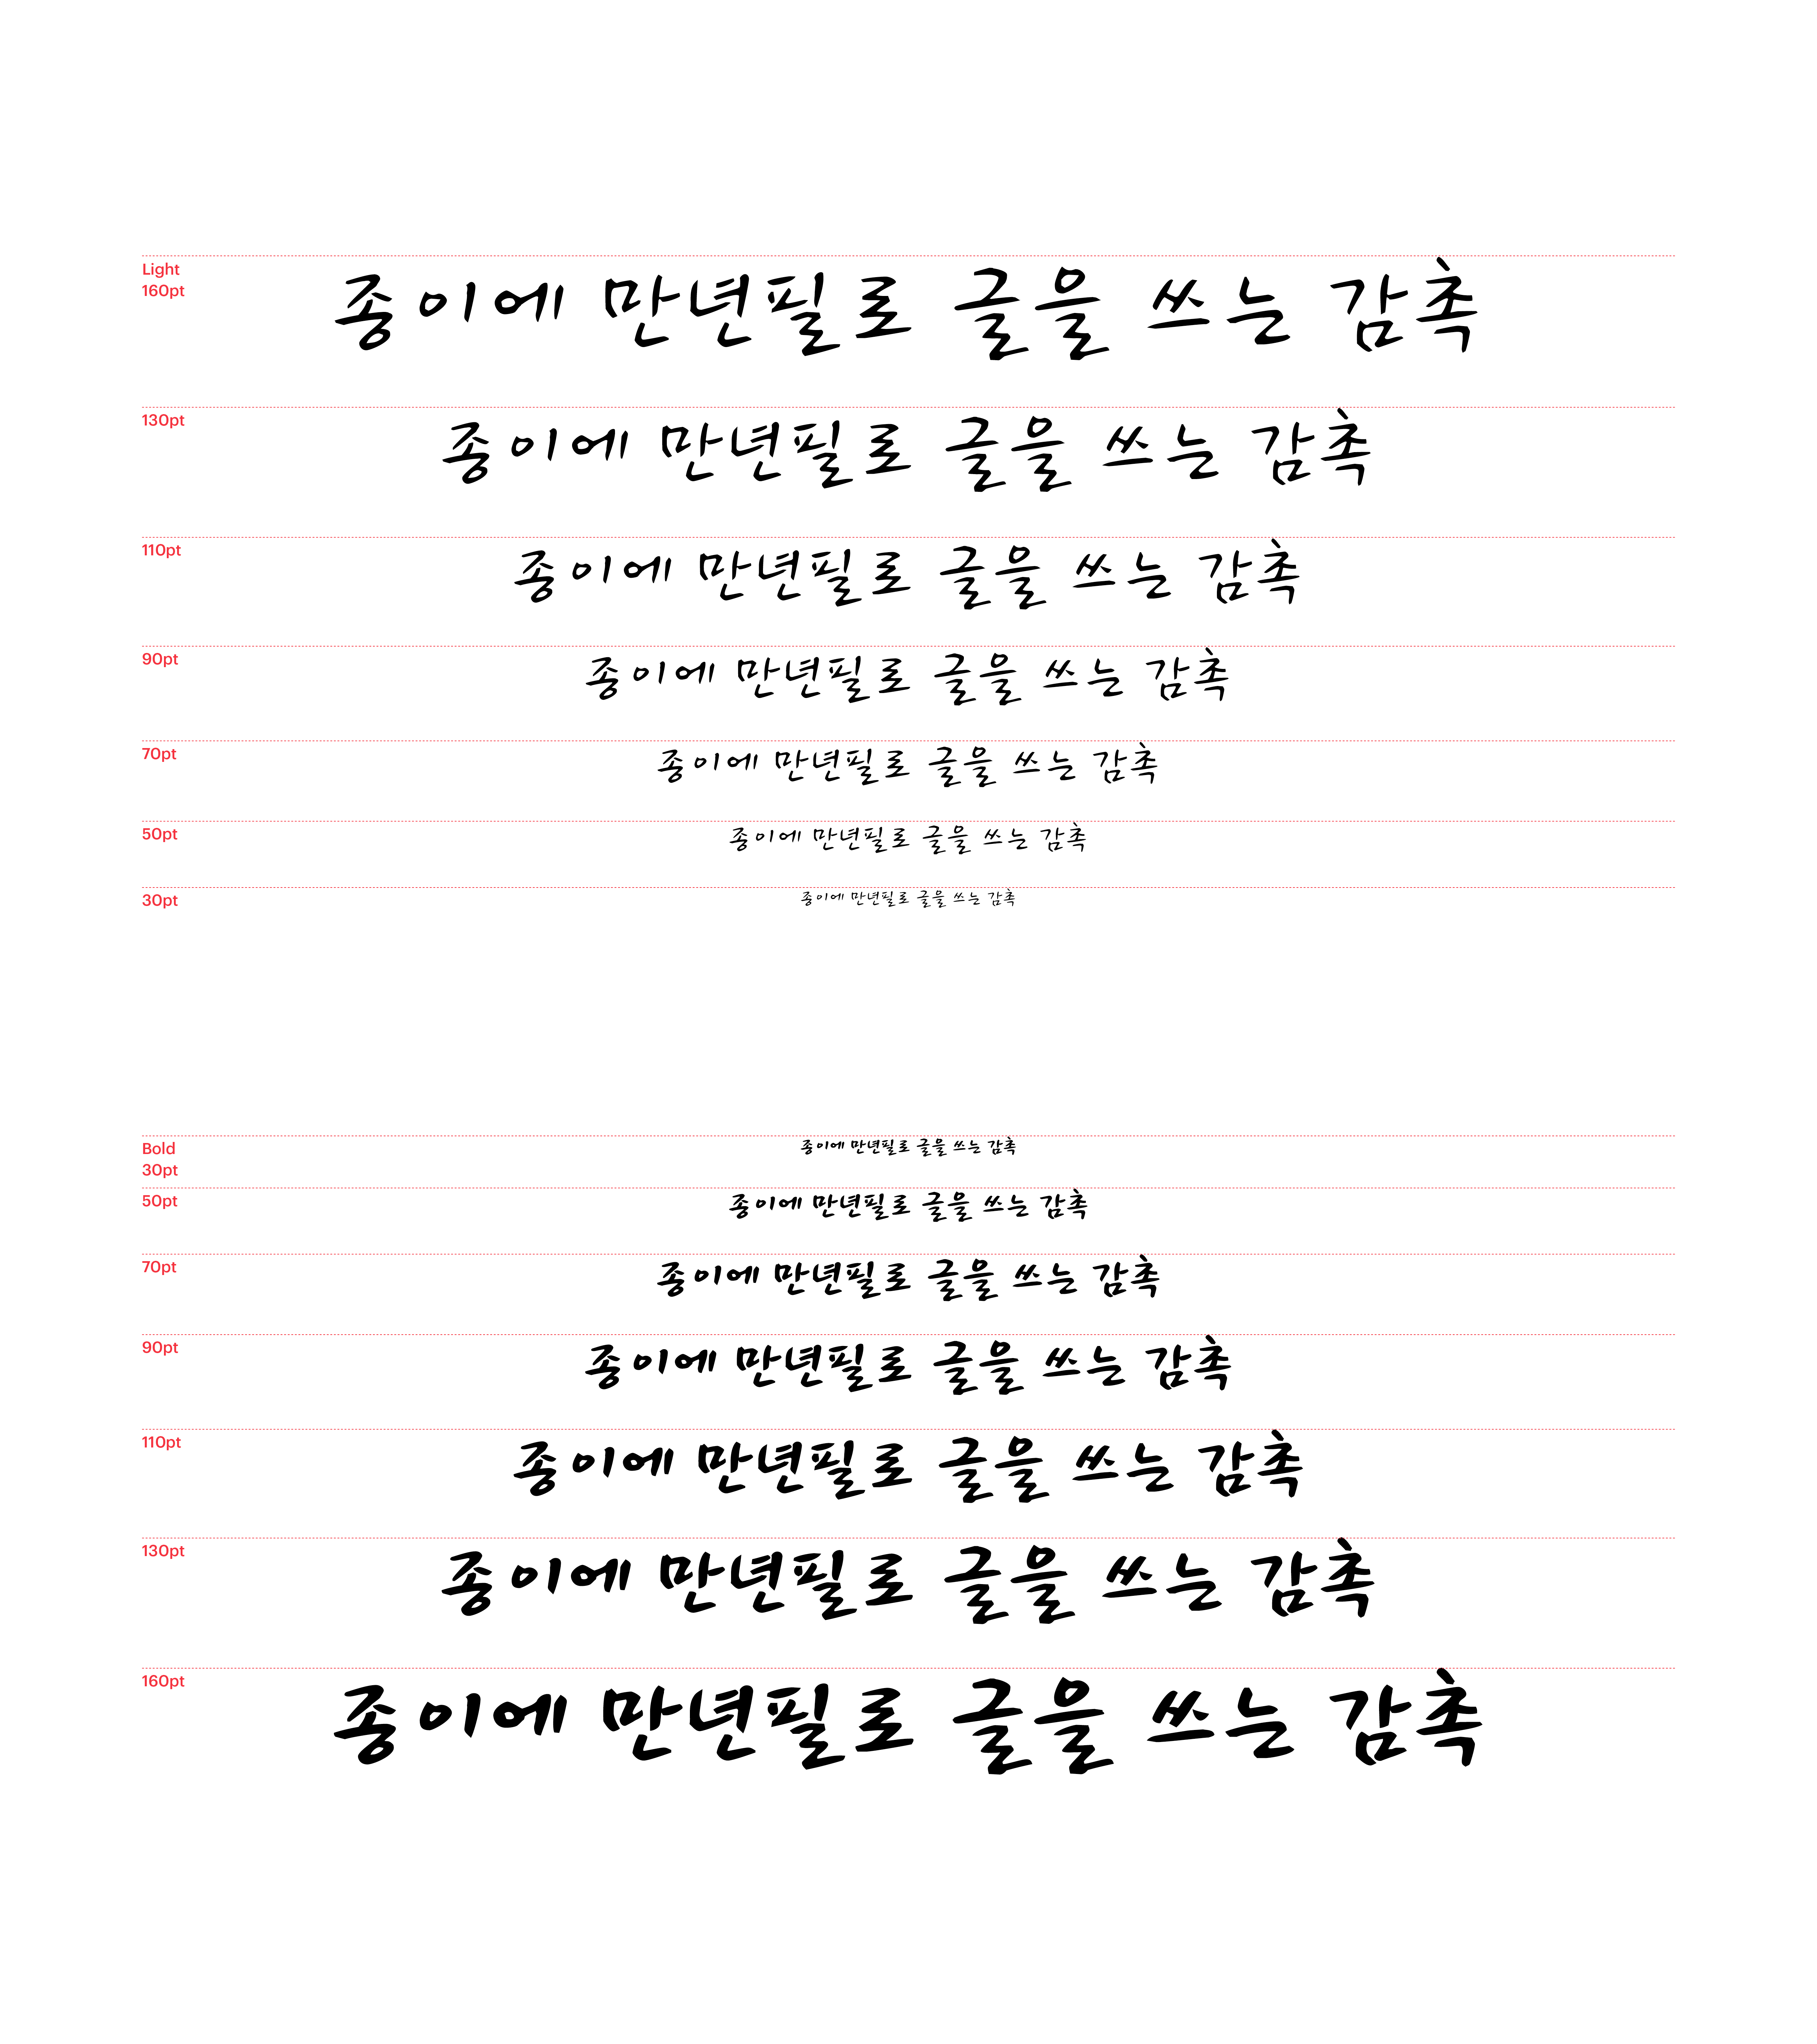 Light
160pt
종이에 만년필로 글을 쓰는 감촉
130pt
종이에 만년필로 글을 쓰는 감촉
110pt
종이에 만년필로 글을 쓰는 감촉
90pt
종이에 만년필로 글을 쓰는 감촉
70pt
종이에 만년필로 글을 쓰는 감촉
50pt
종이에 만년필로 글을 쓰는 감촉
30pt
종이에 만년필로 글을 쓰는 감촉
Bold
30pt
종이에 만년필로 글을 쓰는 감촉
50pt
종이에 만년필로 글을 쓰는 감촉
70pt
종이에 만년필로 글을 쓰는 감촉
90pt
종이에 만년필로 글을 쓰는 감촉
110pt
종이에 만년필로 글을 쓰는 감촉
130pt
종이에 만년필로 글을 쓰는 감촉
160pt
종이에 만년필로 글을 쓰는 감촉